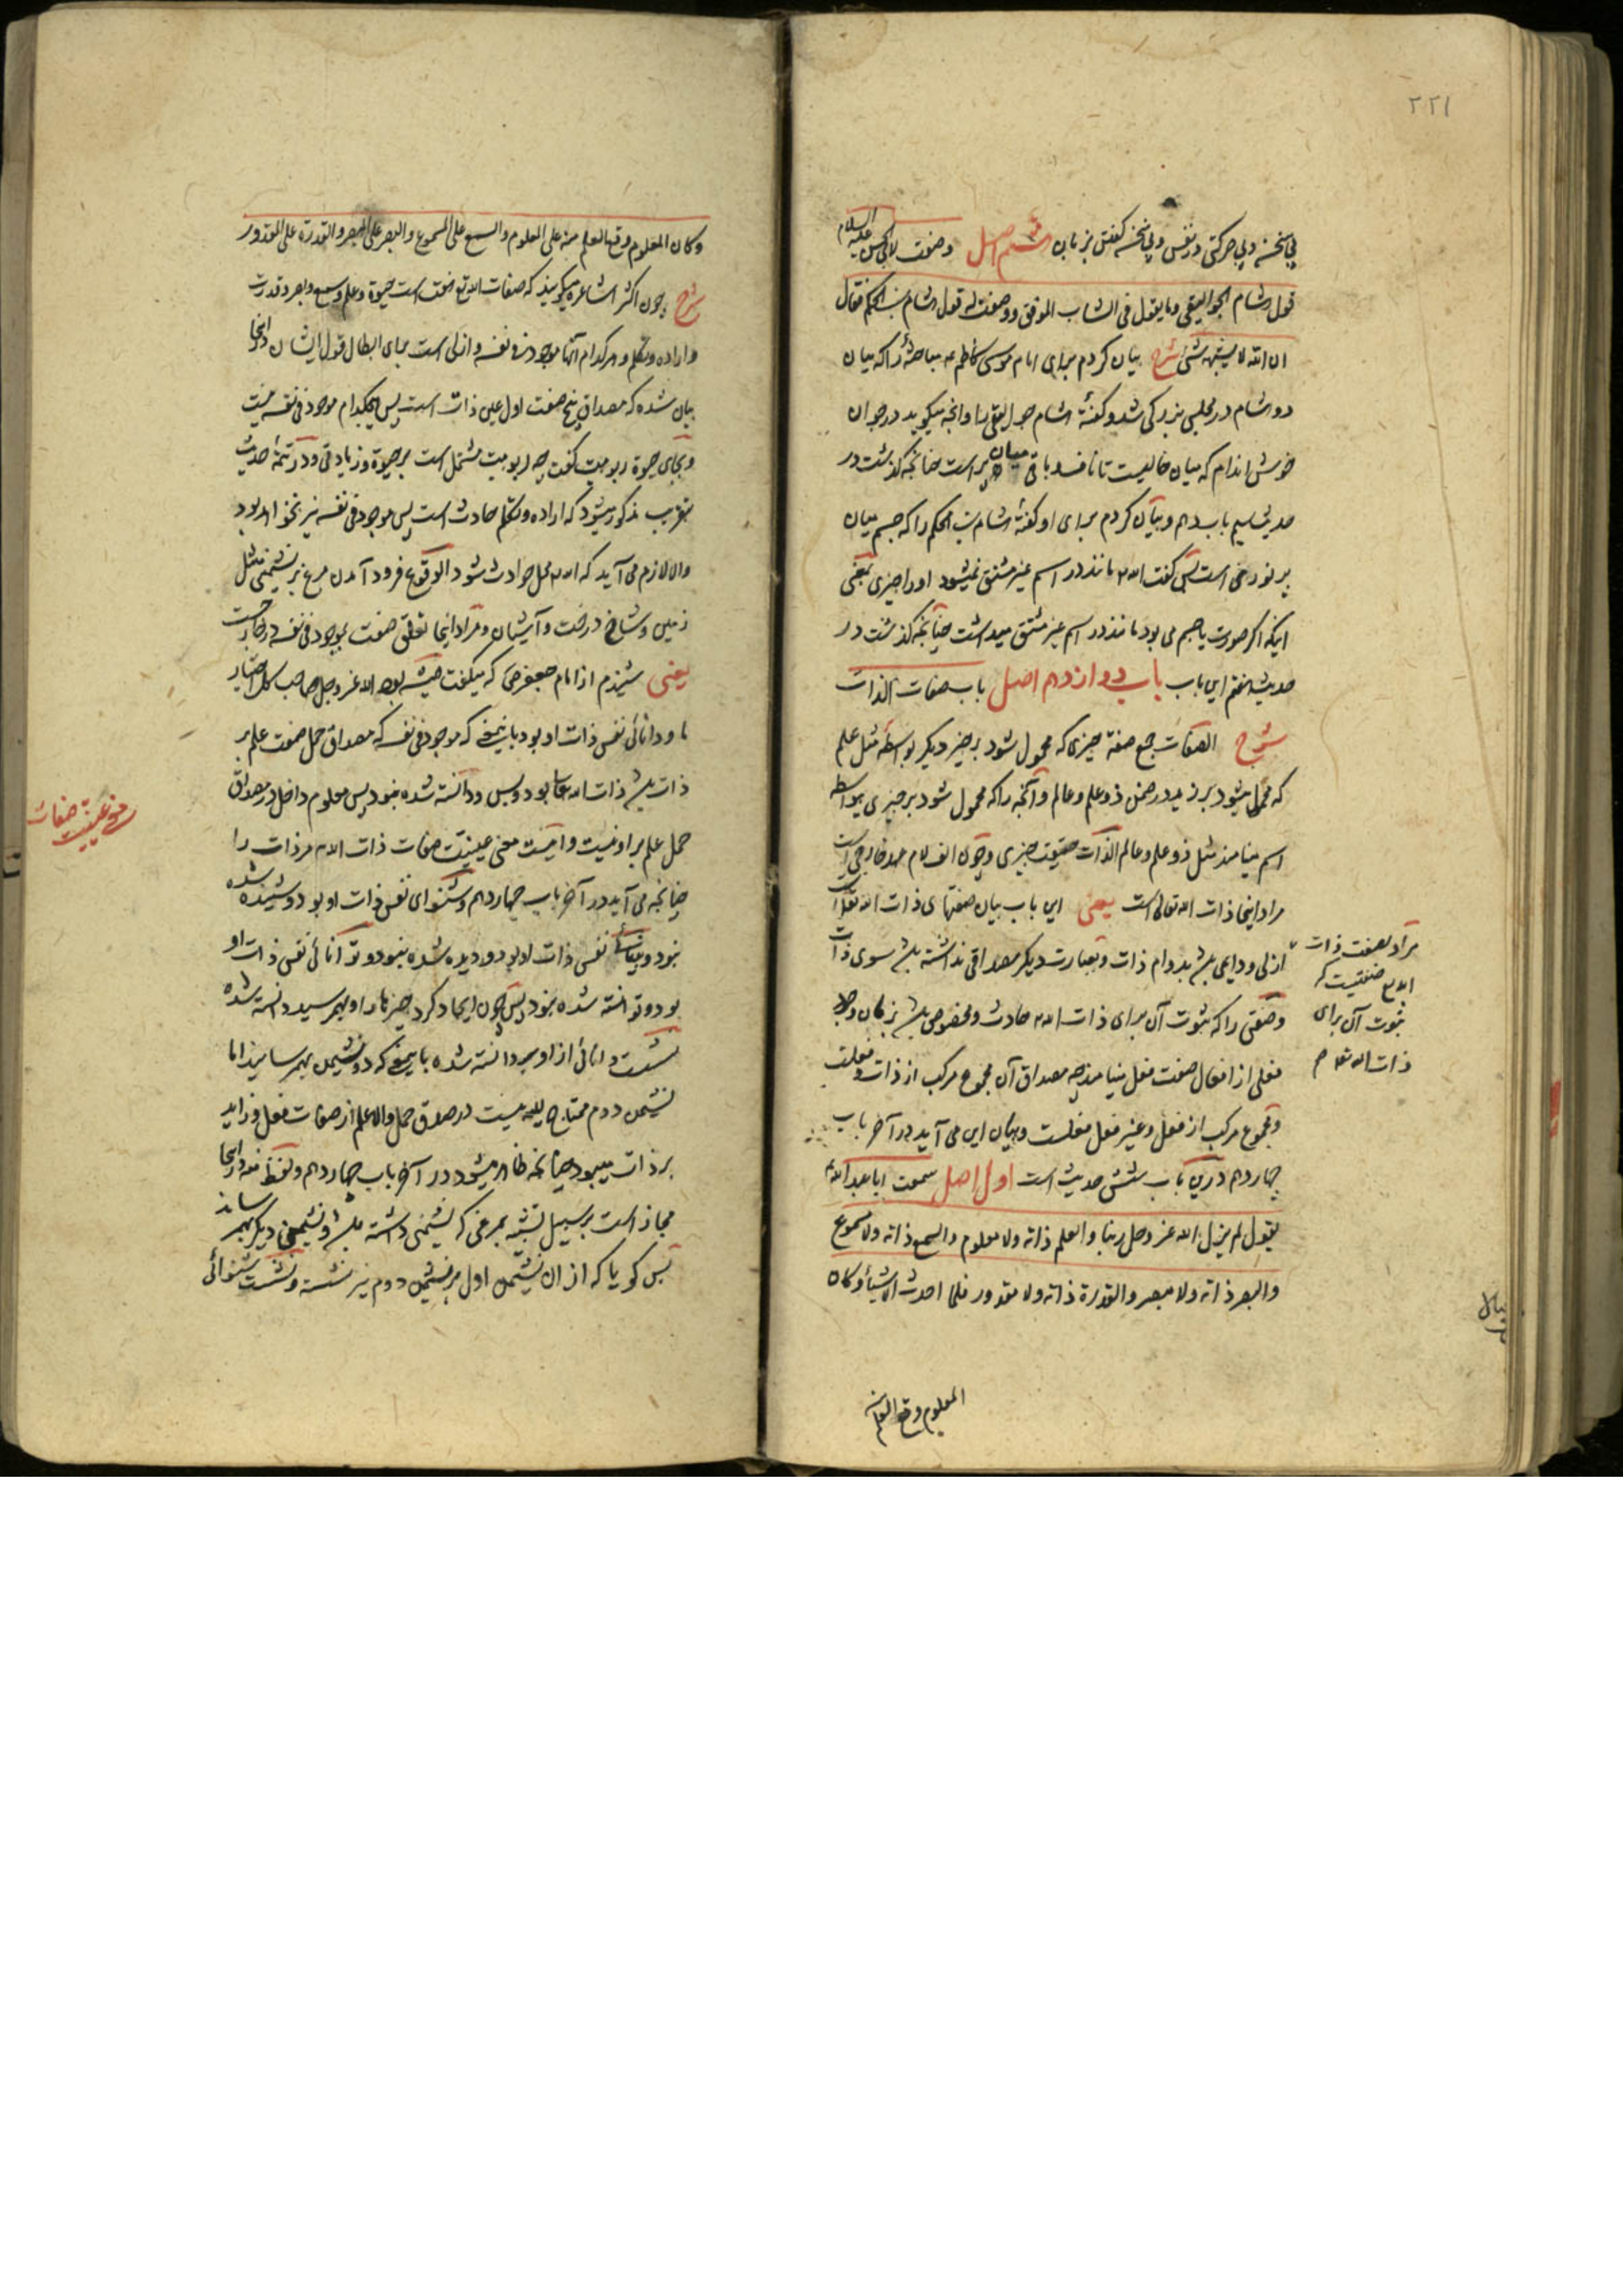 ٢٢١
بی سخنی و بی حرکتی در نفس و بی سخن گفتن بزبان هشتم اصل وصفت لابی الحسن علیه السلام
قول هشام الجوالیقی وما یقول فی الشاب الموفق ووصفت له قول هشام بن الحکم فقال
ان الله لا یشبهه شئ شرح بیان کردم برای امام موسی کاظم ع مباحثهٔ را که میان
دو هشام در مجلس بزرگی شد و گفتهٔ هشام جوالیقی را و آنچه میگوید در جوان
خوش اندام که میان خالیست تا ناف و باقی میان پر است چنانچه گذشت در
حدیث سیم باب دهم و بیان کردم برای او گفتهٔ هشام بن الحکم را که جسم میان
پر نوری است پس گفت الله مانند در اسم غیر مشتق نمیشود او را چیزی یعنی
اینکه اگر صورت یا جسم می بود مانند در اسم غیر مشتق میداشت چنانچه گذشت در
حدیث هفتم این باب باب دوازدهم اصل باب صفات الذات
شرح الصفات جمع صفة چیزی که محمول شود بر چیز دیگر بواسطه مثل علم
که محمول میشود بر زید در ضمن ذو علم و عالم و آنچه را که محمول شود بر چیزی بیواسطه
اسم مینامند مثل ذو علم و عالم الذات حقیقت چیزی و چون الف لام عهد خارجی است
مراد اینجا ذات الله تعالی است یعنی این باب بیان صفتهای ذات الله تعالی است
مراد بصفت ذات
صفتیست که
ثبوت آن برای
ذات الله
ازلی و دایمی باشد بدوام ذات و بعبارت دیگر مصداقی نداشته باشد سوی ذات
و صفتی را که ثبوت آن برای ذات الله حادث و مخصوص باشد بزمان وجود
فعلی از افعال صفت فعل مینامند چه مصداق آن مجموع مرکب از ذات و فعلست
و مجموع مرکب از فعل و غیر فعل فعلست و بیان این می آید در آخر باب
چهاردهم درین باب شش حدیث است اول اصل سمعت ابا عبد الله ع
یقول لم یزل الله عز وجل ربنا والعلم ذاته ولا معلوم والسمع ذاته ولا مسموع
والبصر ذاته ولا مبصر والقدرة ذاته ولا مقدور فلما احدث الاشیاء وکان
المعلوم وقع العلم منه
وکان المعلوم وقع العلم منه علی المعلوم والسمع علی المسموع والبصر علی المبصر والقدرة علی المقدور
شرح چون اکثر اشاعره میگویند که صفات الله تع هفت است حیوة و علم و سمع و بصر و قدرت
و اراده و تکلم و هر کدام آنها موجود فی نفسه و ازلی است برای ابطال قول ایشان در اینجا
بیان شده که مصداق پنج صفت اول عین ذات است پس هیچکدام موجود فی نفسه نیست
و بجای حیوة ربوبیت گفت چه ربوبیت مشتمل است بر حیوة و زیادتی و در تتمهٔ حدیث
بتقریب مذکور میشود که اراده و تکلم حادث است پس موجود فی نفسه نیز نخواهد بود
والا لازم می آید که الله محل حوادث شود الوقوع فرود آمدن مرغ بر نشیمنی مثل
زمین و شاخ درخت و آشیان و مراد اینجا تعلق صفت بموجود فی نفسه در خارج است
یعنی شنیدم از امام جعفر ص که میگفت همیشه بود الله عز وجل صاحب کل اختیار
ما و دانائی نفس ذات او بود باین معنی که موجود فی نفسه که مصداق حمل صفت علم بر
ذات باشد ذات الله تعالی بود و بس و دانسته شده نبود پس معلوم داخل در مصداق
معنی عینیت صفات
حمل علم بر او نیست و اینست معنی عینیت صفات ذات الله مر ذات را
چنانچه می آید در آخر باب چهاردهم و شنوای نفس ذات او بود و شنیده شده
نبود و بینائی نفس ذات او بود و دیده شده نبود و توانائی نفس ذات او
بود و توانسته شده نبود پس چون ایجاد کرد چیزها را و بهم رسید دانسته شده
نشست دانائی از او بر دانسته شده باین معنی که دو نشیمن بهم رسانید اما
نشیمن دوم محتاج الیه نیست در صدق حمل والا علم از صفات فعل و زاید
بر ذات میبود چنانچه ظاهر میشود در آخر باب چهاردهم و لفظ منه در اینجا
مجاز است بر سبیل تشبیه بمرغی که نشیمنی داشته باشد و نشیمنی دیگر بهم رساند
پس گویا که از آن نشیمن اول بر نشیمن دوم نیز نشسته و نشست شنوائی